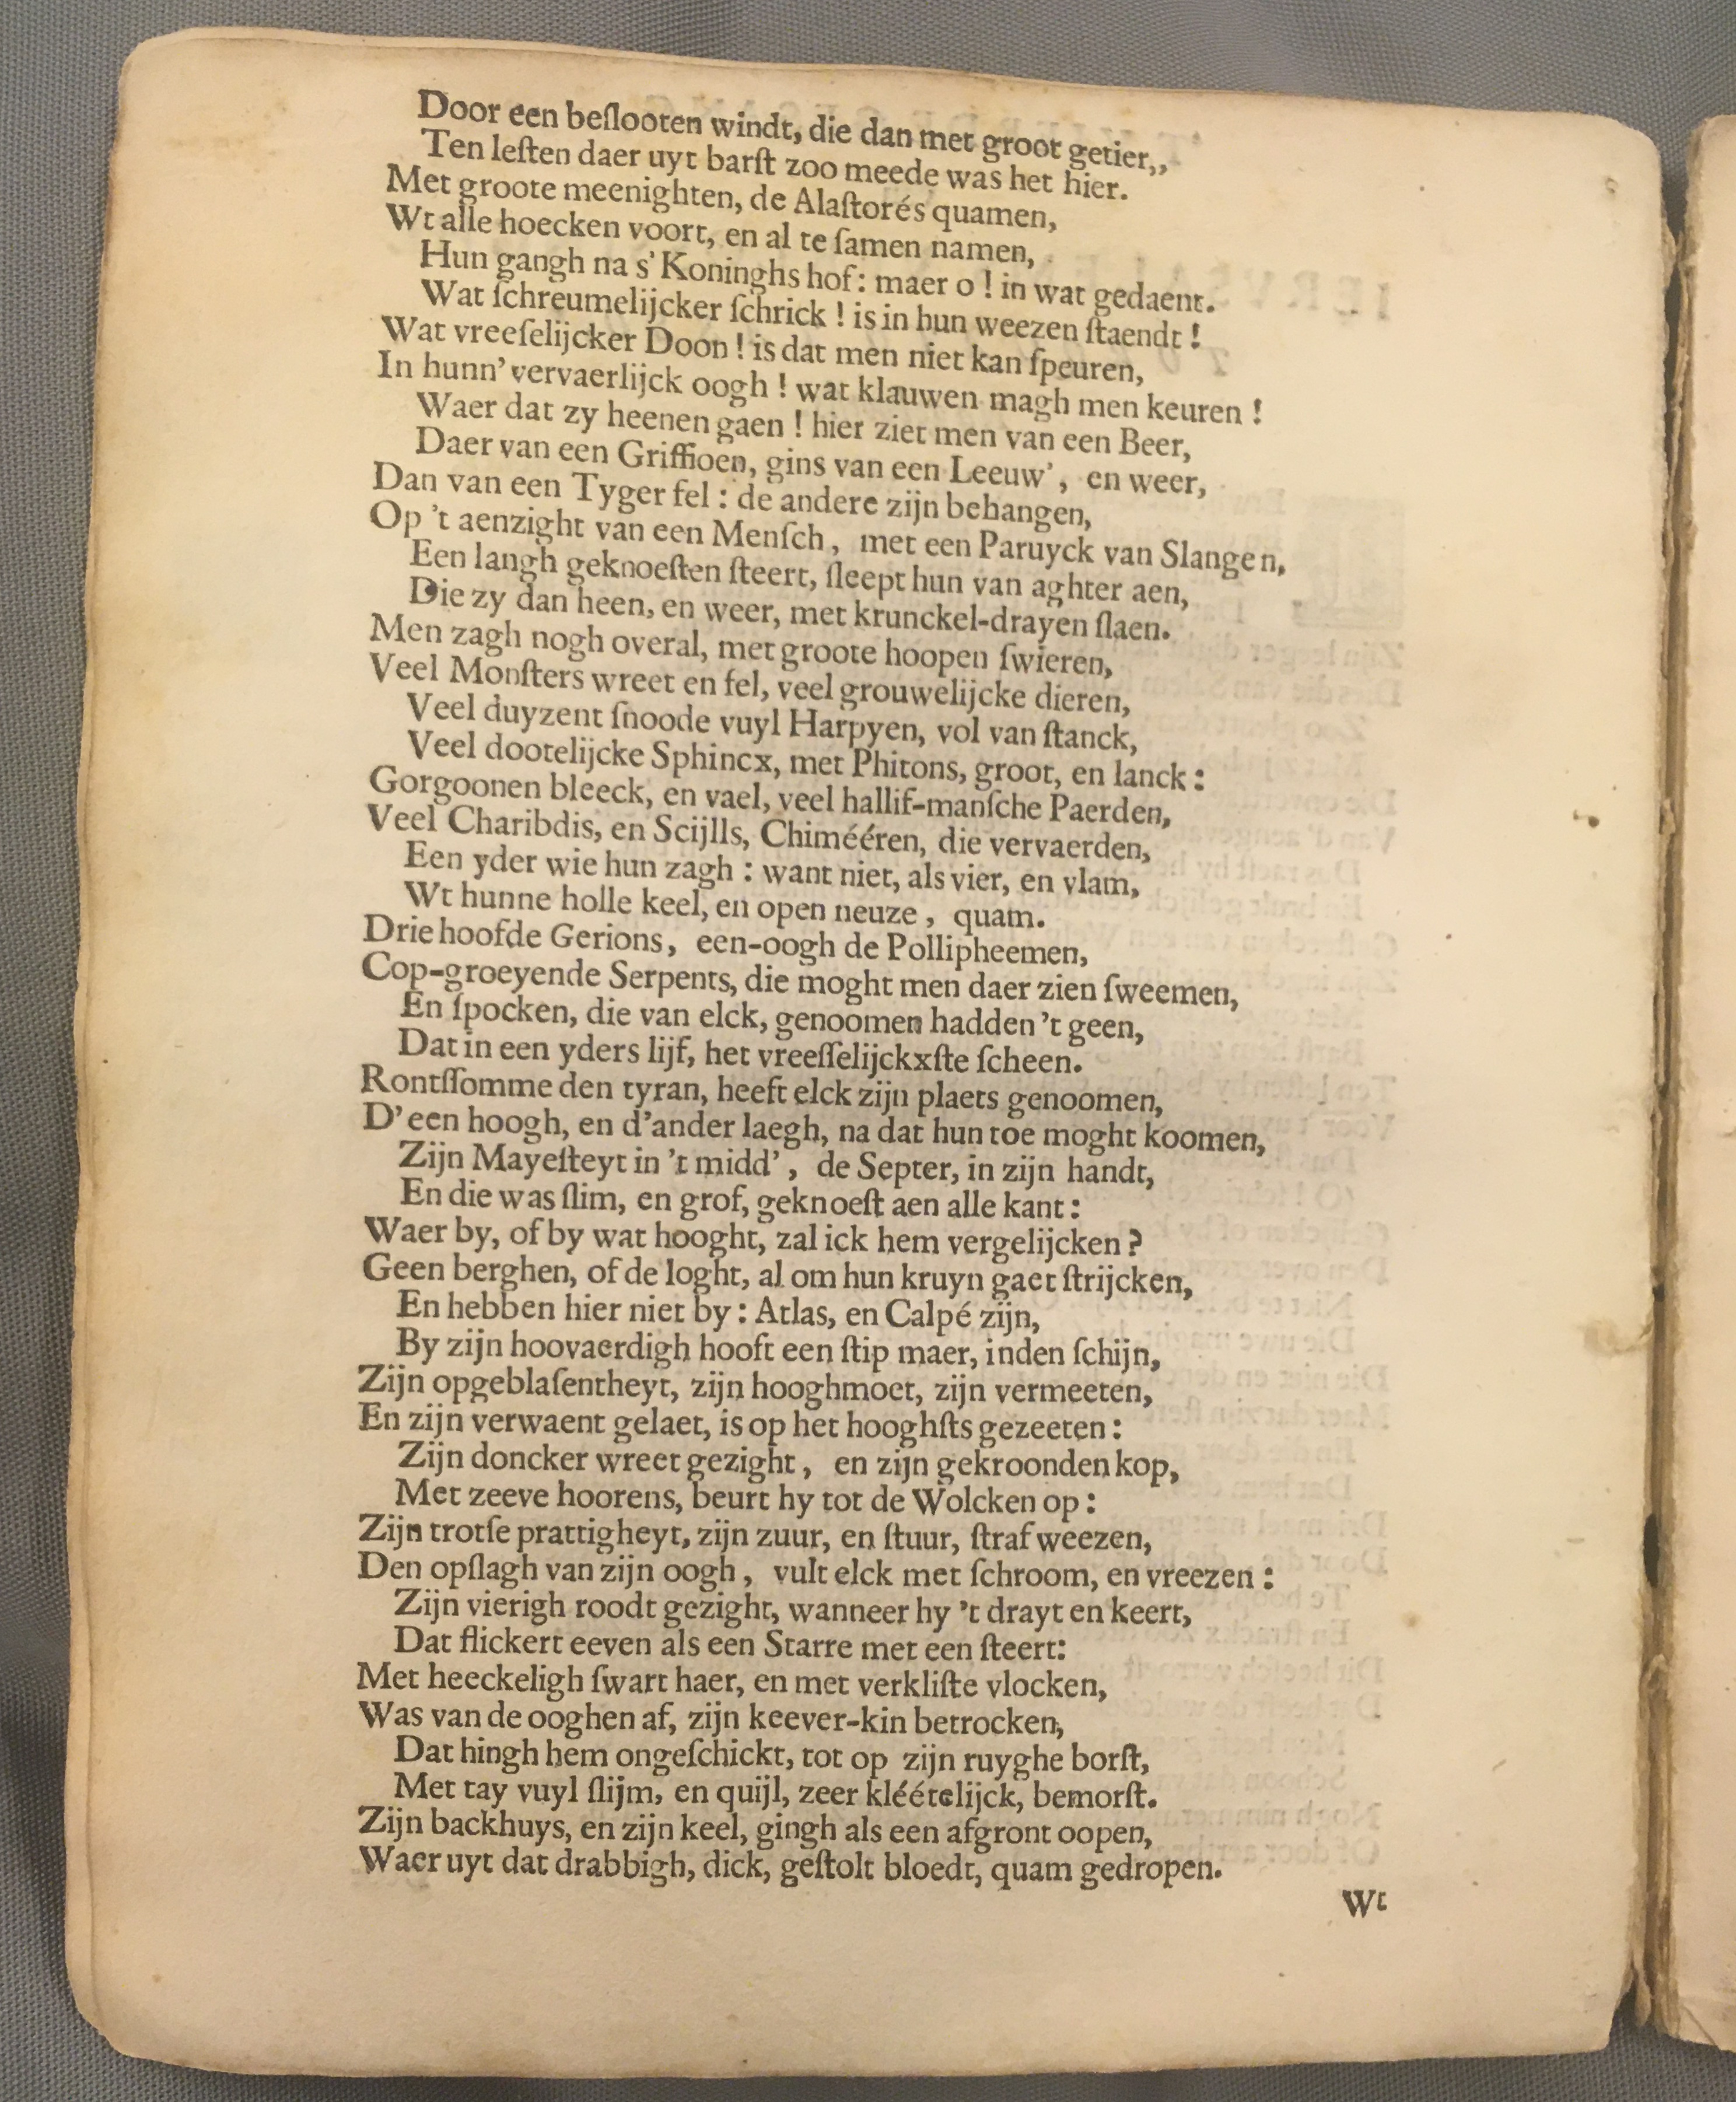 Door een beſlooten windt, die dan met groot getier,,
Ten leſten daer uyt barſt zoo meede was het hier.
Met groote meenighten, de Alaſtorés quamen,
Wt alle hoecken voort, en al te ſamen namen,
Hun gangh na s' Koninghs hof: maer o! in wat gedaent.
Wat ſchreumelijcker ſchrick! is in hun weezen ſtaendt!
Wat vreeſelijcker Doon! is dat men niet kan ſpeuren,
In hunn' vervaerlijck oogh! wat klauwen magh men keuren!
Waer dat zy heenen gaen! hier ziet men van een Beer,
Daer van een Griffioen, gins van een Leeuw', en weer,
Dan van een Tyger fel: de andere zijn behangen,
Op 't aenzight van een Menſch, met een Paruyck van Slangen,
Een langh geknoeſten ſteert, ſleept hun van aghter aen,
Die zy dan heen, en weer, met krunckel-drayen ſlaen.
Men zagh nogh overal, met groote hoopen ſwieren,
Veel Monſters wreet en fel, veel grouwelijcke dieren,
Veel duyzent ſnoode vuyl Harpyen, vol van ſtanck,
Veel dootelijcke Sphincx, met Phitons, groot, en lanck:
Gorgoonen bleeck, en vael, veel hallif-manſche Paerden,
Veel Charibdis, en Scijlls, Chiméeren, die vervaerden,
Een yder wie hun zagh: want niet, als vier, en vlam,
Wt hunne holle keel, en open neuze, quam.
Drie hoofde Gerions, een-oogh de Pollipheemen,
Cop-groeyende Serpents, die moght men daer zien ſweemen,
En ſpocken, die van elck, genoomen hadden 't geen,
Dat in een yders lijf, het vreeſſelijckxſte ſcheen.
Rontſſomme den tyran, heeft elck zijn plaets genoomen,
D' een hoogh, en d'ander laegh, na dat hun toe moght koomen,
Zijn Mayeſteyt in 't midd', de Septer, in zijn handt,
En die was ſlim, en grof, geknoeſt aen alle kant:
Waer by, of by wat hooght, zal ick hem vergelijcken?
Geen berghen, of de loght, al om hun kruyn gaet ſtrijcken,
En hebben hier niet by: Atlas, en Calpé zijn,
By zijn hoovaerdigh hooft een ſtip maer, inden ſchijn,
Zijn opgeblaſentheyt, zijn hooghmoet, zijn vermeeten,
En zijn verwaent gelaet, is op het hooghſts gezeeten:
Zijn doncker wreet gezight, en zijn gekroonden kop,
Met zeeve hoorens, beurt hy tot de Wolcken op:
Zijn trotſe prattigheyt, zijn zuur, en ſtuur, ſtraf weezen,
Den opſlagh van zijn oogh, vult elck met ſchroom, en vreezen:
Zijn vierigh roodt gezight, wanneer hy 't drayt en keert,
Dat flickert eeven als een Starre met een ſteert:
Met heeckeligh ſwart haer, en met verkliſte vlocken,
Was van de ooghen af, zijn keever-kin betrocken,
Dat hingh hem ongeſchickt, tot op zijn ruyghe borſt,
Met tay vuyl ſlijm, en quijl, zeer kléételijck, bemorſt.
Zijn backhuys, en zijn keel, gingh als een afgront oopen,
Waer uyt dat drabbigh, dick, geſtolt bloedt, quam gedropen.
Wt